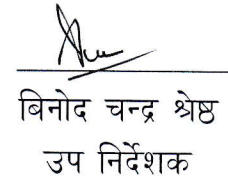 बिनोद चन्द्र श्रेष्ठ
उप निर्देशक